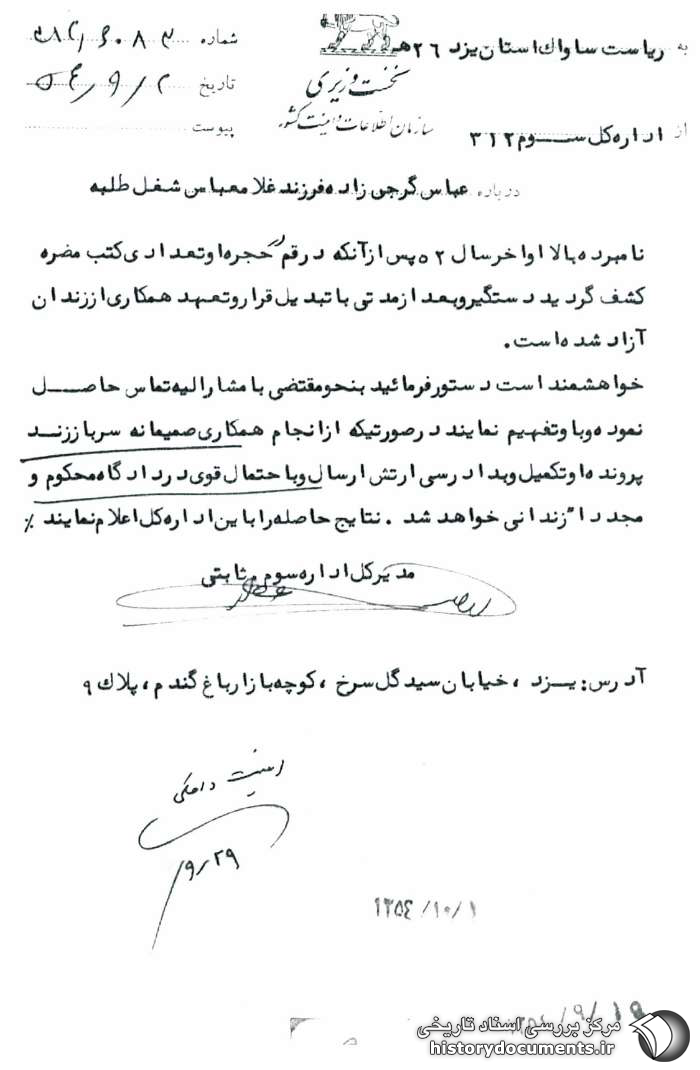 به ریاست ساواک استان یزد ۲۶هـ
شماره
نخست وزیری
تاریخ
سازمان اطلاعات و امنیت کشور
پیوست
از اداره کل سوم ۳۱۲
درباره عباس گرجی زاده فرزند غلامعباس شغل طلبه
نامبرده بالا اواخر سال ۵۲ پس از آنکه در قم حجره او تعدادی کتب مضره
کشف گردید دستگیر و بعد از مدتی با تبدیل قرار و تعهد همکاری از زندان
آزاد شده است.
خواهشمند است دستور فرمائید بنحو مقتضی با مشارالیه تماس حاصل
نموده و با و تفهیم نمایند در صورتیکه از انجام همکاری صمیمانه سرباز زند
پرونده او تکمیل و بدادرسی ارتش ارسال و با حتمال قوی در دادگاه محکوم و
مجدداً زندانی خواهد شد. نتایج حاصله را باین اداره کل اعلام نمایند٪
مدیرکل اداره سوم ثابتی
آدرس: یزد، خیابان سید گل سرخ، کوچه بازار باغ گندم، پلاک ۹
امنیت داخلی
۹٫۲۹
۱۳۵۴/۱۰/۱
مرکز بررسی اسناد تاریخی
historydocuments.ir